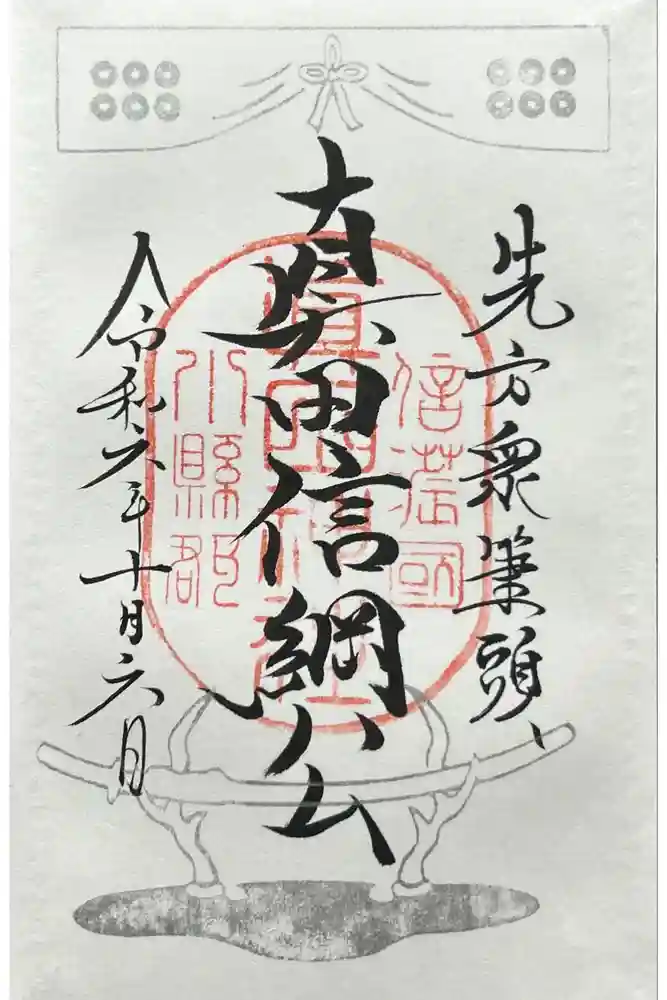 先方衆筆頭、
真田信綱公
令和六年十月六日
信濃國
小縣郡